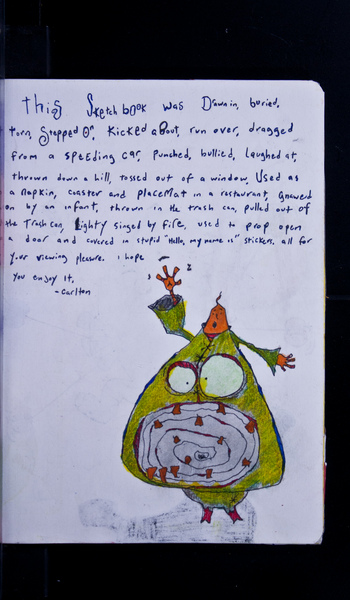 this Sketchbook was Drawn in, buried,
torn, Stepped On, Kicked about, run over, dragged
from a speeding car, punched, bullied, laughed at,
thrown down a hill, tossed out of a window, Used as
a napkin, coaster and placemat in a restaurant, gnawed
on by an infant, thrown in the trash can, pulled out of
the Trash can, Lighty singed by fire, used to prop open
a door and covered in stupid "Hello, my name is" stickers. all for
your viewing pleasure. i hope
you enjoy it,
-Carlton